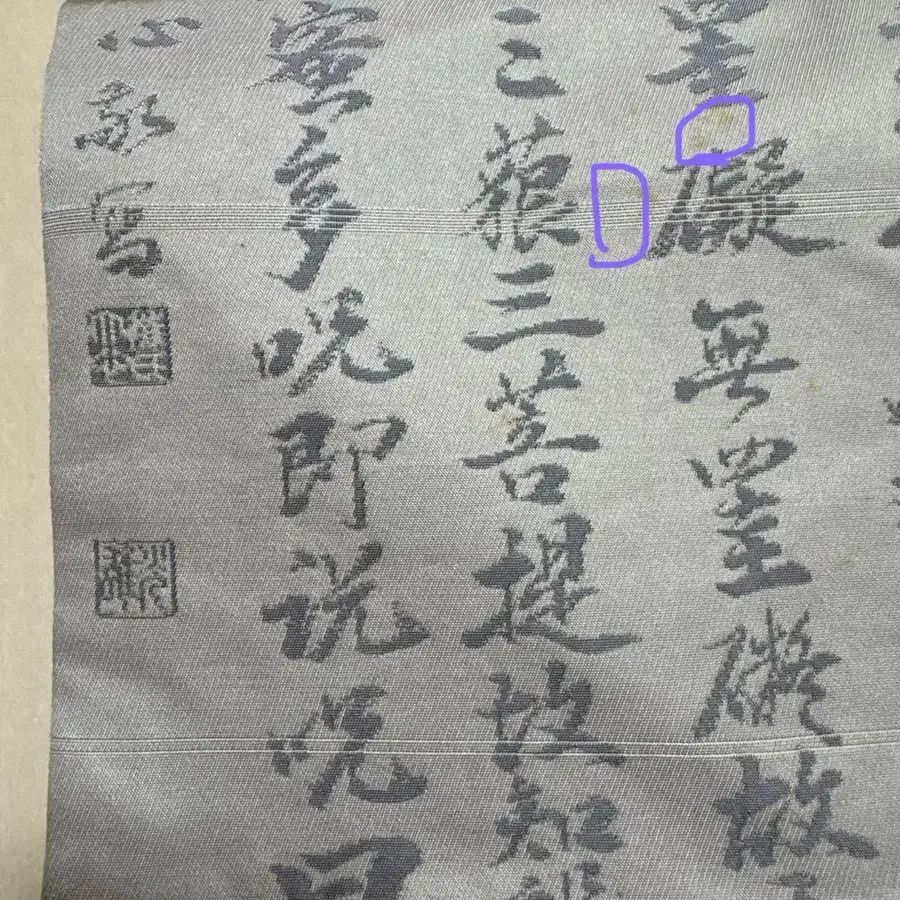 罣礙無罣礙故
三藐三菩提故知般
蜜多呪即說呪曰
心敬寫